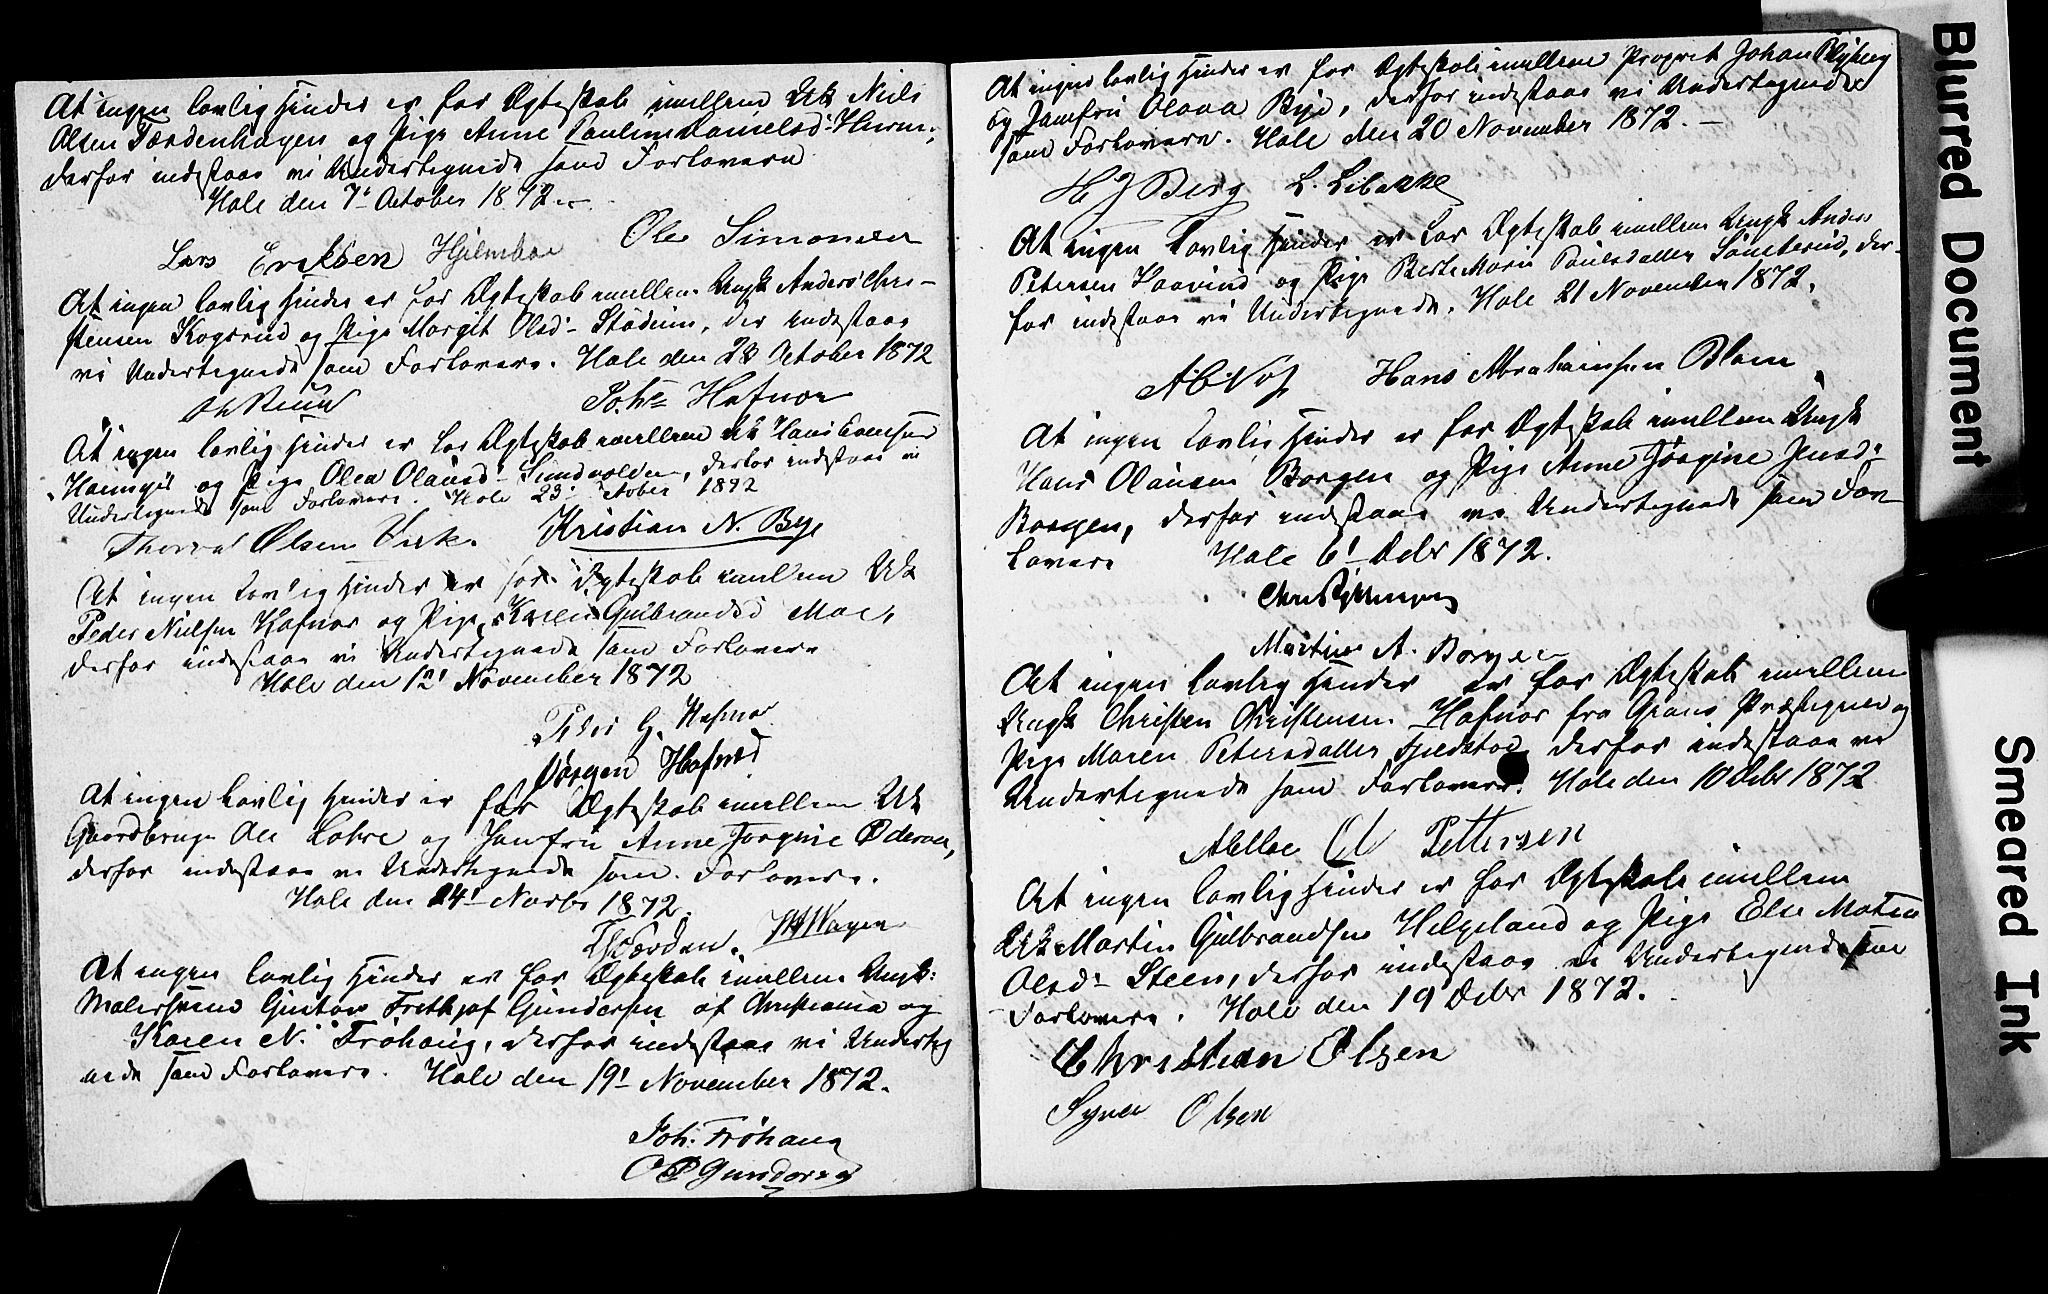 At ingen lovlig Hinder er for Ægteskab imellem Uk Niels
Olsen Færdenhagen og Pige Anne Pauline Danielsd:
derfor indestaae vi Undertegnede som Forlovere
Hole den 7' October 1872.
Ole Simonsen
Lars Eriksen Hjelmboe
At ingen lovlig Hinder er for Ægteskab imellem Ungk Anders Chri-
stensen Kogsrud og Pige Margit Olsd: der indestaae
vi Undertegnede som Forlovere. Hole den 23 October 1872
Johs Hafnor
At ingen lovlig Hinder er for Ægteskab imellem Uk Hans Evensen
og Pige Olea Olausd: Sundvolden, derfor indestaae vi
Undertegnede som Forlovere. Hole 23' October 1872
Olsen Kristian N. Bye
At ingen lovlig Hinder er for Ægteskab imellem Uk
Peder Nielsen Hafnor og Pige Karen Gulbrandsd Moe,
derfor indestaae vi Undertegnede som Forlovere
Hole den 12' November 1872
Peder G. Hafnor
Jörgen Hafnor
At ingen lovlig Hinder er for Ægteskab imellem Uk
Gaardbruger Ole Lohre og Jomfru Anne Jörgine
derfor indestaae vi Undertegnede som Forlovere.
Hole den 14' Novbr 1872.
At ingen lovlig Hinder er for Ægteskab imellem Ungk:
Malersvend Gustav Frethjof Gundersen af Christiania og
Karen N. Fröhaug, derfor indestaae vi Underteg
nede som Forlovere. Hole den 19' November 1872.
Joh. Fröhaug
O P Gundersen
At ingen lovlig Hinder er for Ægteskab imellem Johan
og Jomfru Olava Bye, derfor indestaae vi Undertegnede
som Forlovere. Hole den 20 November 1872.
H J Berg L. Libakke
At ingen lovlig Hinder er for Ægteskab imellem Ungk Anders
Petersen og Pige Berte Marie Paulsdatter der-
for indestaae vi Undertegnede. Hole 21 November 1872.
Hans Abrahamsen Blom
At ingen lovlig Hinder er for Ægteskab imellem Ungk
Hans Olausen Borgen og Pige Anne Jörgine Jensd:
Borgen, derfor indestaae vi Undertegnede som For
lovere Hole 6' Debr 1872.
Martin A. Borgen
At ingen lovlig Hinder er for Ægteskab imellem
Ungk Christen Christensen Hafnor fra Grans Præstegjeld og
Pige Maren Petersdatter derfor indestaae vi
Undertegnede som Forlovere. Hole den 10 Debr 1872
Pettersen
At ingen lovlig Hinder er for Ægteskab imellem
Uk Martin Gulbrandsen Helgeland og Pige Else Matea
Olsd: Steen, derfor indestaae vi Undertegnede som
Forlovere. Hole den 19 Debr 1872.
Christian Olsen
Syver Olsen
Blurred Document
Smeared Ink